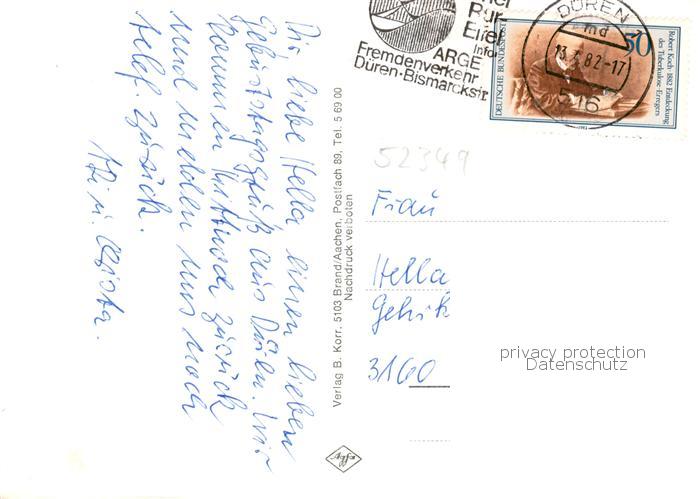 Dir liebe Hella einen lieben
Geburtstagsgruß aus Düren. Wir
kommen Mittwoch zurück
und melden uns nach
zurück.
Verlag B. Korr. 5103 Brand/Aachen, Postfach 89, Tel. 5 69 00
Nachdruck verboten
Agfa
Rur-
Eifel
Info:
ARGE
Fremdenverkehr
Düren·Bismarckstr
DÜREN
13.
82-17
516
50
DEUTSCHE BUNDESPOST
Robert Koch 1882 Entdeckung
des Tuberkulose-Erregers
52349
Frau
Hella
3160
privacy protection
Datenschutz